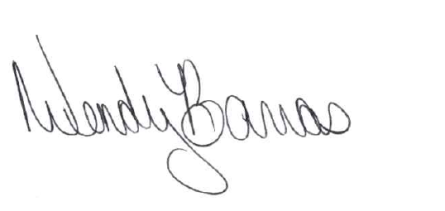 Wendy Barras